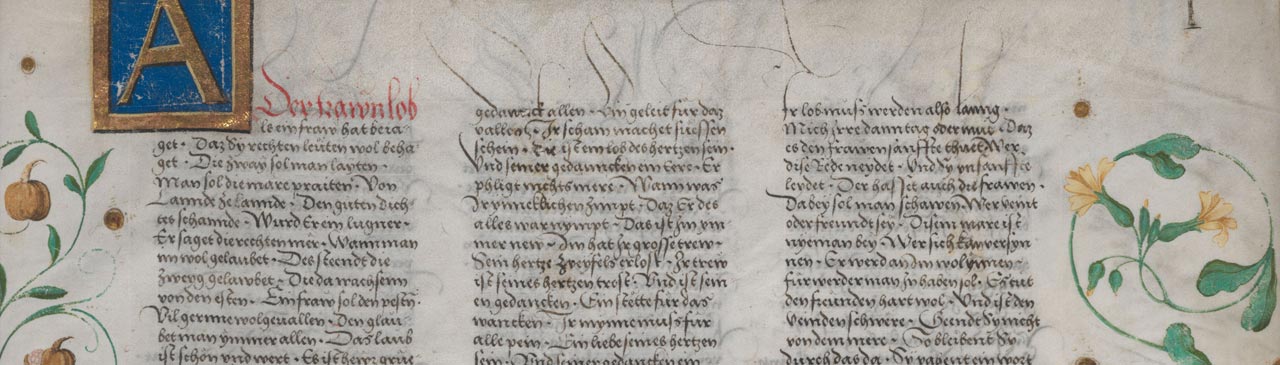 A
Der frawn lob
le ein fraw hat bera
get · Daz Sy rechten leüten wol beha
get · Die zway sol man layten ·
Man sol die mare praiten · Von
Lannde ze lannde · Den guten dich
tes schannde · Wurd Er ein lugner ·
Er saget die rechten mer · Wann man
im wol gelaubet · Des steendt die
zweyg gelawbet · Die da wachsenn
von den esten · Ein fraw sol den pesten ·
Vil gernne wol geuallen · Den glau
bet man ymmer allen · Das laub
ist schön vnd wert · Es ist
gedanck allen · Ein geleit für daz
vallen · Ir scham machet süessen
schein · Sie ist ein lob des hertzen sein ·
Vnd seiner gedanncken ein Eere · Er
phligt nichts mere · Wann was
Ir ymeklichen zimpt · Daz Er des
alles war nympt · Das ist Im ym
mer new · Im hat Ir grosse trew ·
Sein hertze zweyfels erlost · Ir trew
ist seines hertzen trost · Vnd ist sein
en gedancken · Ein stette für das
wancken · Ir mynne muss für
alle pein · Ein liebe seines hertzen
sein · Vnd seiner gedancken ein
Ir lob muss werden also lanng ·
Mich Irre dann tag oder mut · Daz
es den frawen sannffte thuet · Wer
dise Rede neydet · Vnd Sy vnsanffte
leydet · Der hasset auch die frawen ·
Dabey sol man schawen Wer veint
oder freundt sey · Disem mare ist
nyeman bey · Wer sich kan versyn
nen · Er werd an Im wol ynnen ·
für wer der man In haben sol · Es tut
den freunden hart wol · Vnd ist den
veinden schwere · Geendt Sy nicht
von dem mere · So bleibent Sy
durch das da · Sy habent ein wort